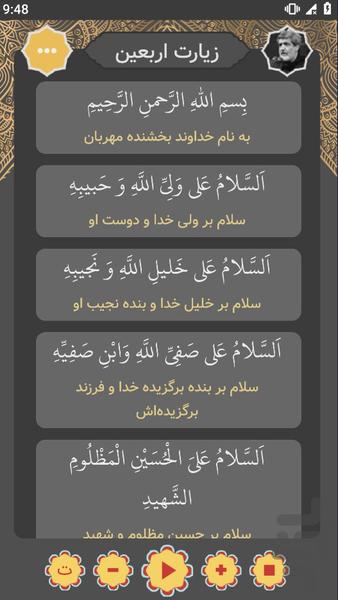 9:48
زیارت اربعین
بِسمِ اللهِ الرَّحمنِ الرَّحیمِ
به نام خداوند بخشنده مهربان
اَلسَّلامُ عَلی وَلِیِّ اللَّهِ وَ حَبیبِهِ
سلام بر ولی خدا و دوست او
اَلسَّلامُ عَلی خَلیلِ اللَّهِ وَ نَجیبِهِ
سلام بر خلیل خدا و بنده نجیب او
اَلسَّلامُ عَلی صَفِیِّ اللَّهِ وَابْنِ صَفِیِّهِ
سلام بر بنده برگزیده خدا و فرزند
برگزیده‌اش
اَلسَّلامُ عَلیَ الْحُسَیْنِ الْمَظْلُومِ
الشَّهیدِ
سلام بر حسین مظلوم و شهید
ت